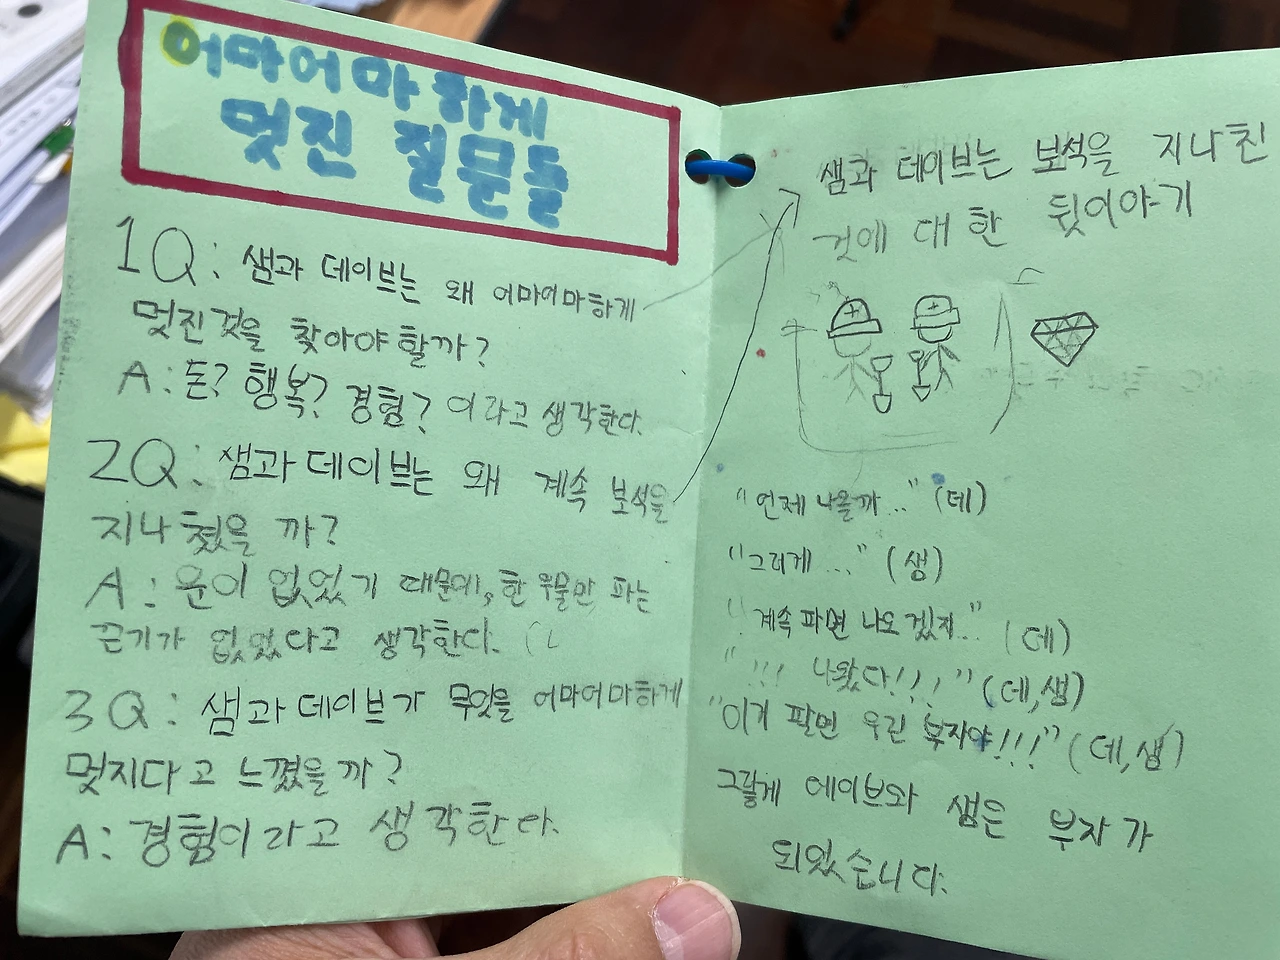 어마어마하게
멋진 질문들
1Q: 샘과 데이브는 왜 어마어마하게
멋진것을 찾아야 할까?
A: 돈? 행복? 경험? 이라고 생각한다.
2Q: 샘과 데이브는 왜 계속 보석을
지나쳤을 까?
A: 운이 없었기 때문에, 한 우물만 파는
끈기가 없었다고 생각한다.
3Q: 샘과 데이브가 무엇을 어마어마하게
멋지다고 느꼈을까?
A: 경험이라고 생각한다.
샘과 데이브는 보석을 지나친
것에 대한 뒷이야기
"언제 나올까..." (데)
"그러게..." (샘)
"계속 파면 나오겠지..." (데)
"!!! 나왔다!!!" (데,샘)
"이거 팔면 우린 부자야!!!" (데,샘)
그렇게 데이브와 샘은 부자가
되었습니다.